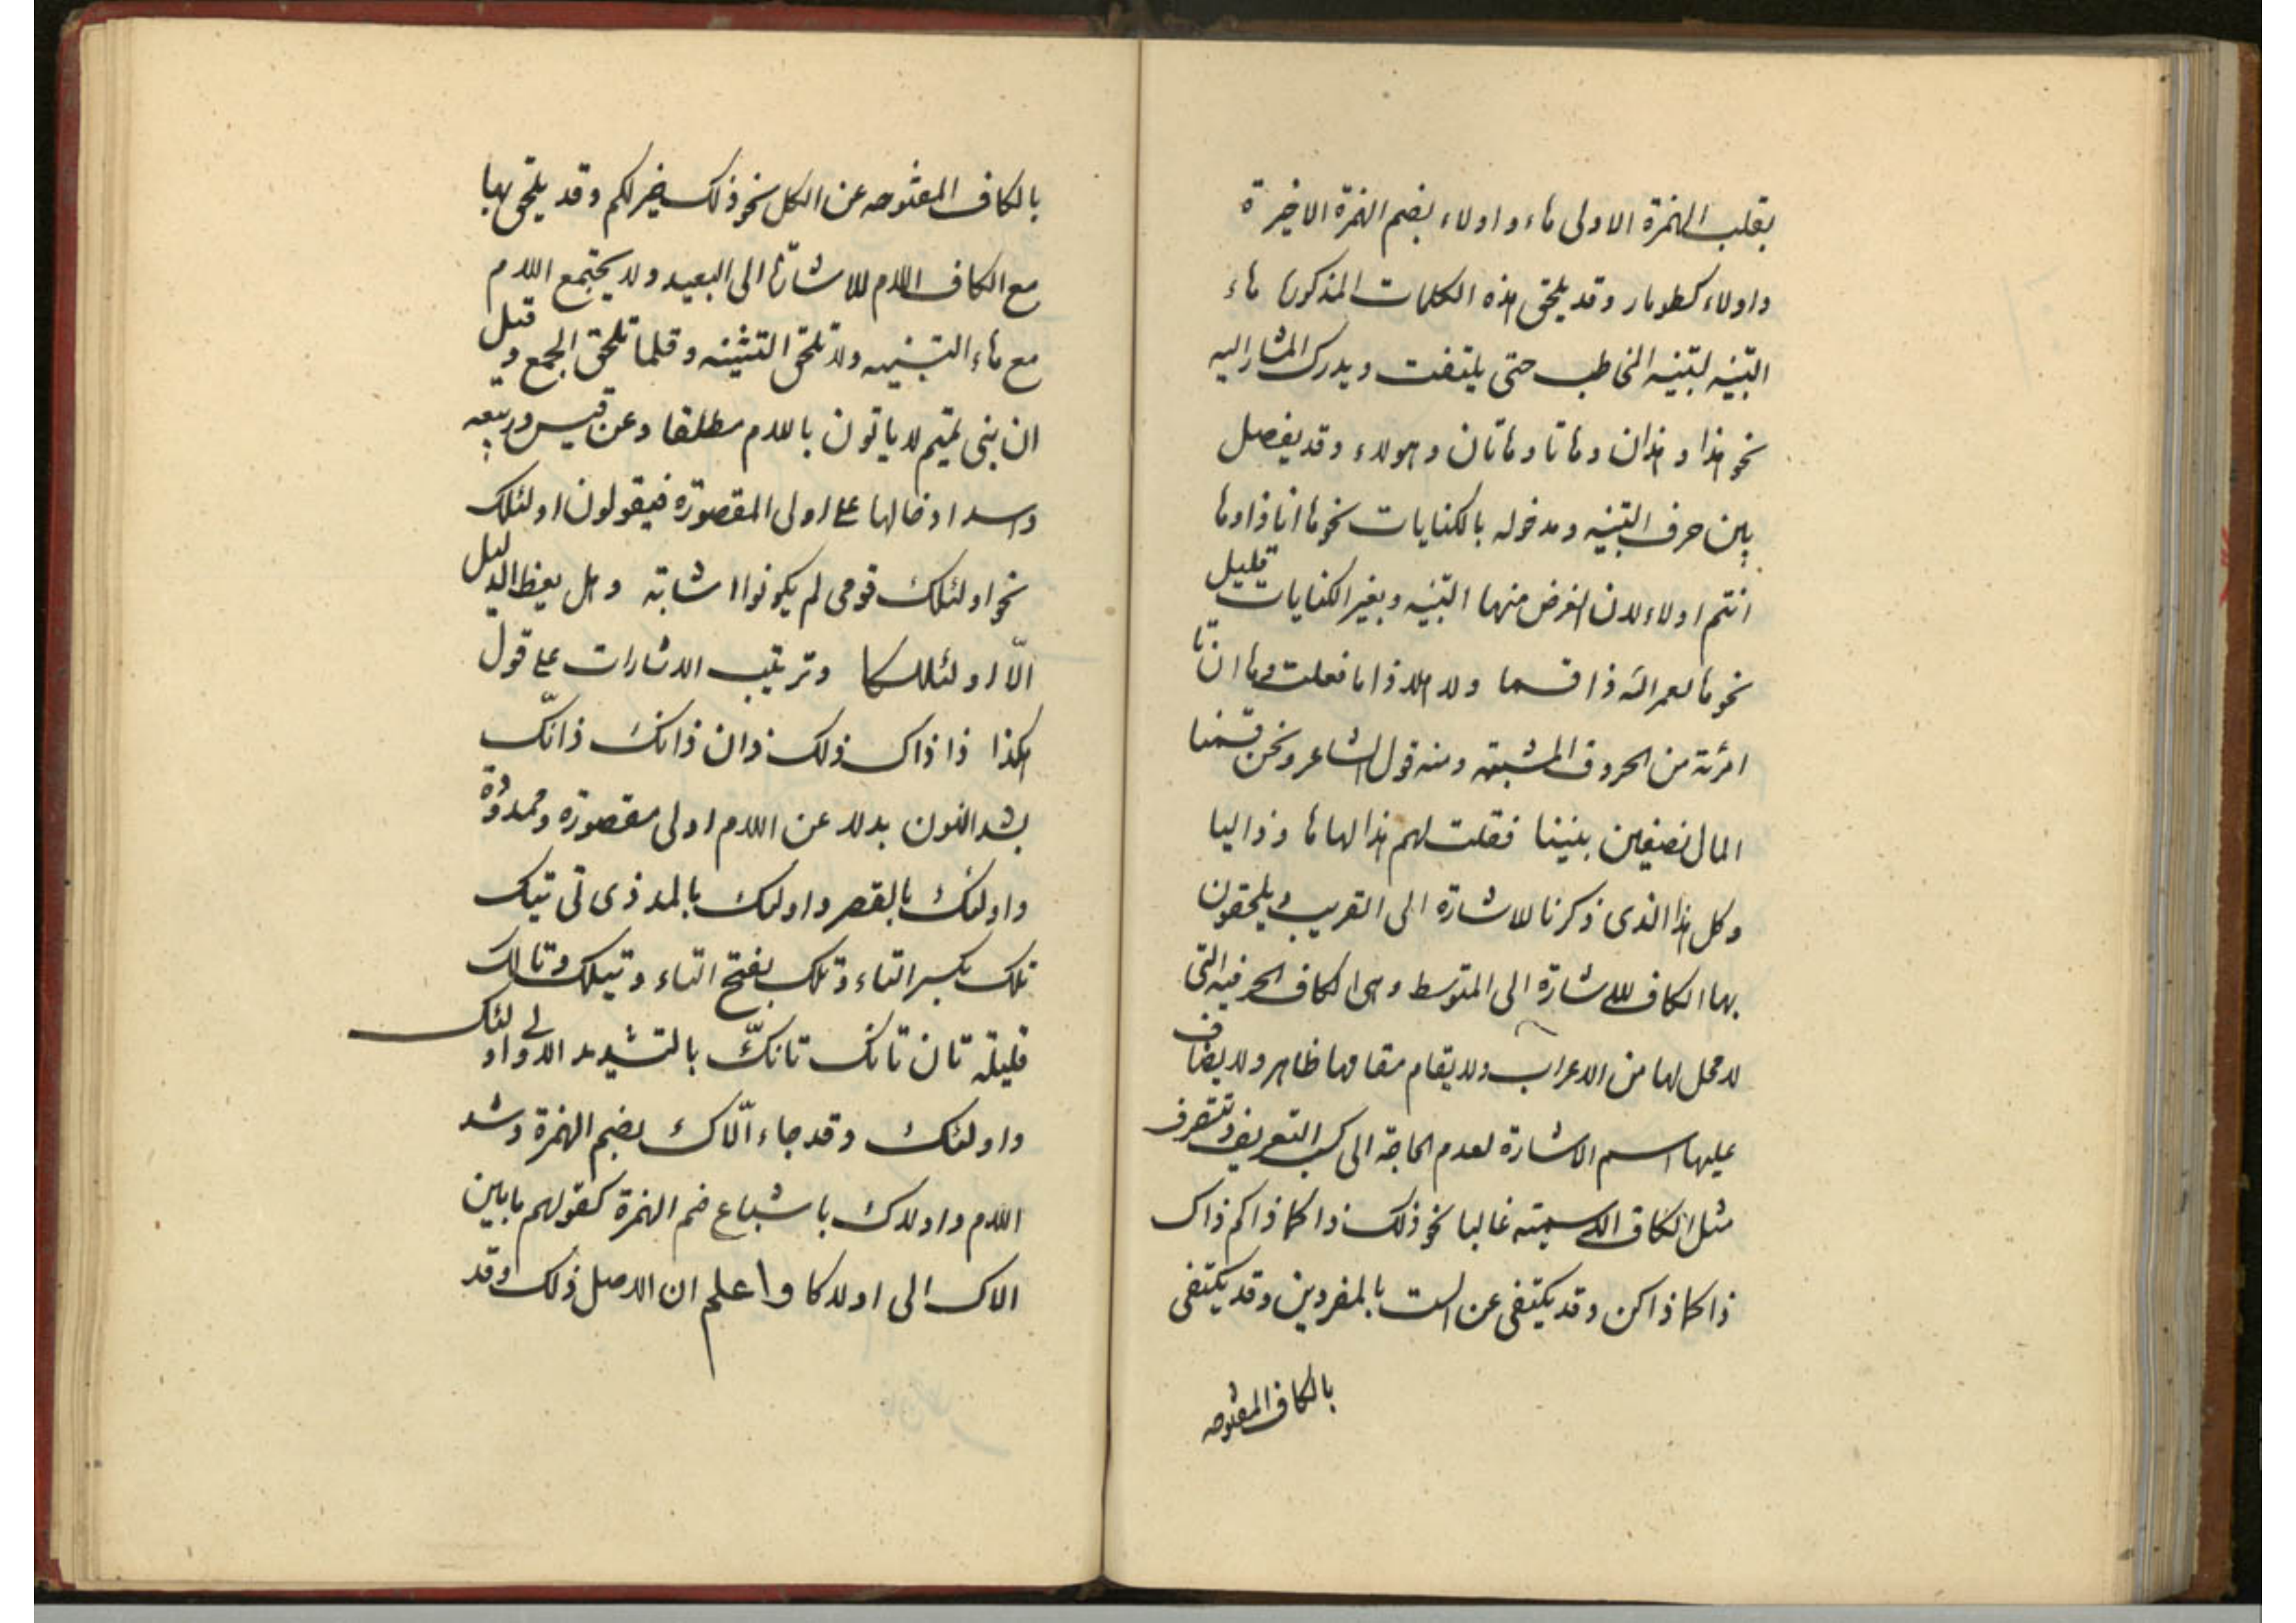 بقلب الهمزة الاولى هاء و اولاء بضم الهمزة الاخيرة
واولاء كطومار وقد يلحق هذه الكلمات المذكورة هاء
التنبيه لتنبيه المخاطب حتى يلتفت ويدرك المشار اليه
نحو هذا و هذان وهاتا وهاتان وهولاء وقد يفصل
بين حرف التنبيه ومدخوله بالكنايات نحو ها انا ذا وها
انتم اولاء لان الغرض منها التنبيه وبغير الكنايات قليل
نحو ها لعمر الله ذا قسما ولا هلا ذا ما فعلت وها ان تا
من الحروف المشبهة ومنه قول الشاعر ونحن قسمنا
المال نصفين بيننا فقلت لهم هذا لها ها وذا ليا
وكل هذا الذى ذكرنا للاشارة الى القريب ويلحقون
بها الكاف للاشارة الى المتوسط وهى الكاف الحرفيه التى
لا محل لها من الاعراب ولا يقام مقامها ظاهر ولا يضاف
عليها اسم الاشارة لعدم الحاجة الى كسب التعريف وتتصرف
مثل الكاف الاسمية غالبا نحو ذلك ذاكما ذاكم ذاك
ذاكما ذاكن وقد يكتفى عن الست بالمفردين وقد يكتفى
بالكاف المفتوحه
بالكاف المفتوحه عن الكل نحو ذلك خير لكم وقد يلحق بها
مع الكاف اللام للاشارة الى البعيد ولا يجتمع اللام
مع هاء التنبيه ولا تلحق التثنيه وقلما تلحق الجمع و قيل
ان بنى تميم لا ياتون باللام مطلقا وعن قيس وربيعه
واسد ادخالها على اولى المقصورة فيقولون اولئلك
نحو اولئلك قومى لم يكونوا اشابة وهل يعظ الضليل
الّا اولئلكا وترتيب الاشارات على قول
هكذا ذا ذاك ذلك ذان ذانك ذانّك
بشد النون بدلا عن اللام اولى مقصورة وممدودة
واولئك بالقصر واولئك بالمد ذى تى تيك
تلك بكسر التاء وتلك بفتح التاء وتيلك وتالك
قليلة تان تانك تانّك بالتشديد الاولى و اولئك
واولئك وقد جاء الّاك بضم الهمزة وشد
اللام واولاك باشباع ضم الهمزة كقولهم ما بين
الاك الى اولاكا واعلم ان الاصل ذلك وقد